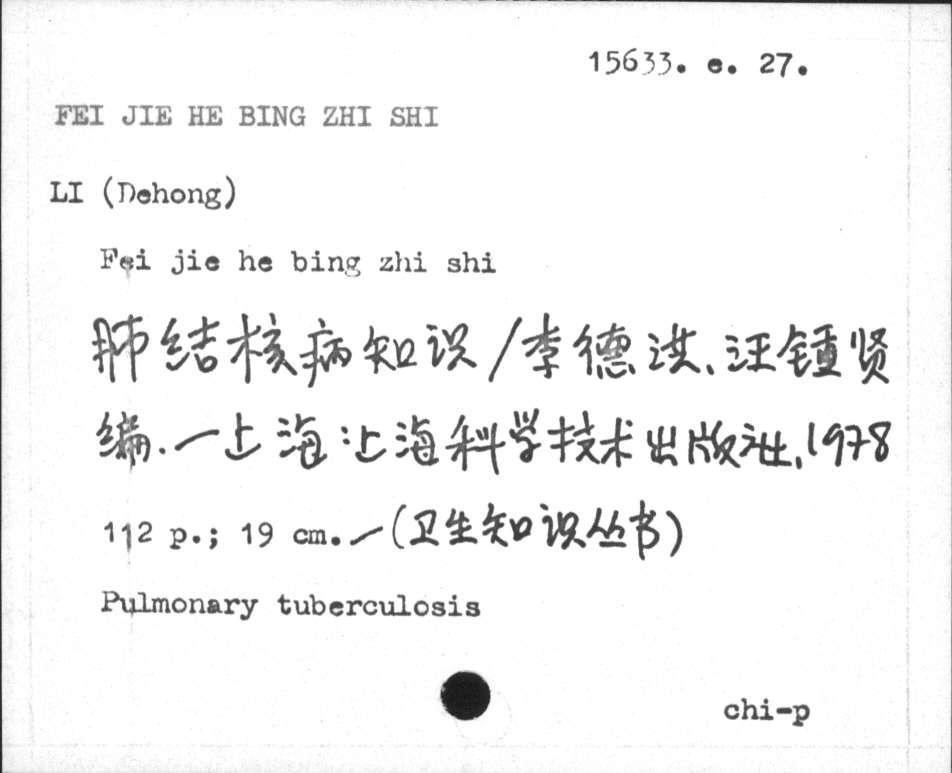 15633. e. 27.
FEI JIE HE BING ZHI SHI
LI (Dehong)
Fei jie he bing zhi shi
肺结核病知识/李德洪、汪锺贤
编.—上海:上海科学技术出版社,1978
112 p.; 19 cm.—(卫生知识丛书)
Pulmonary tuberculosis
chi-p